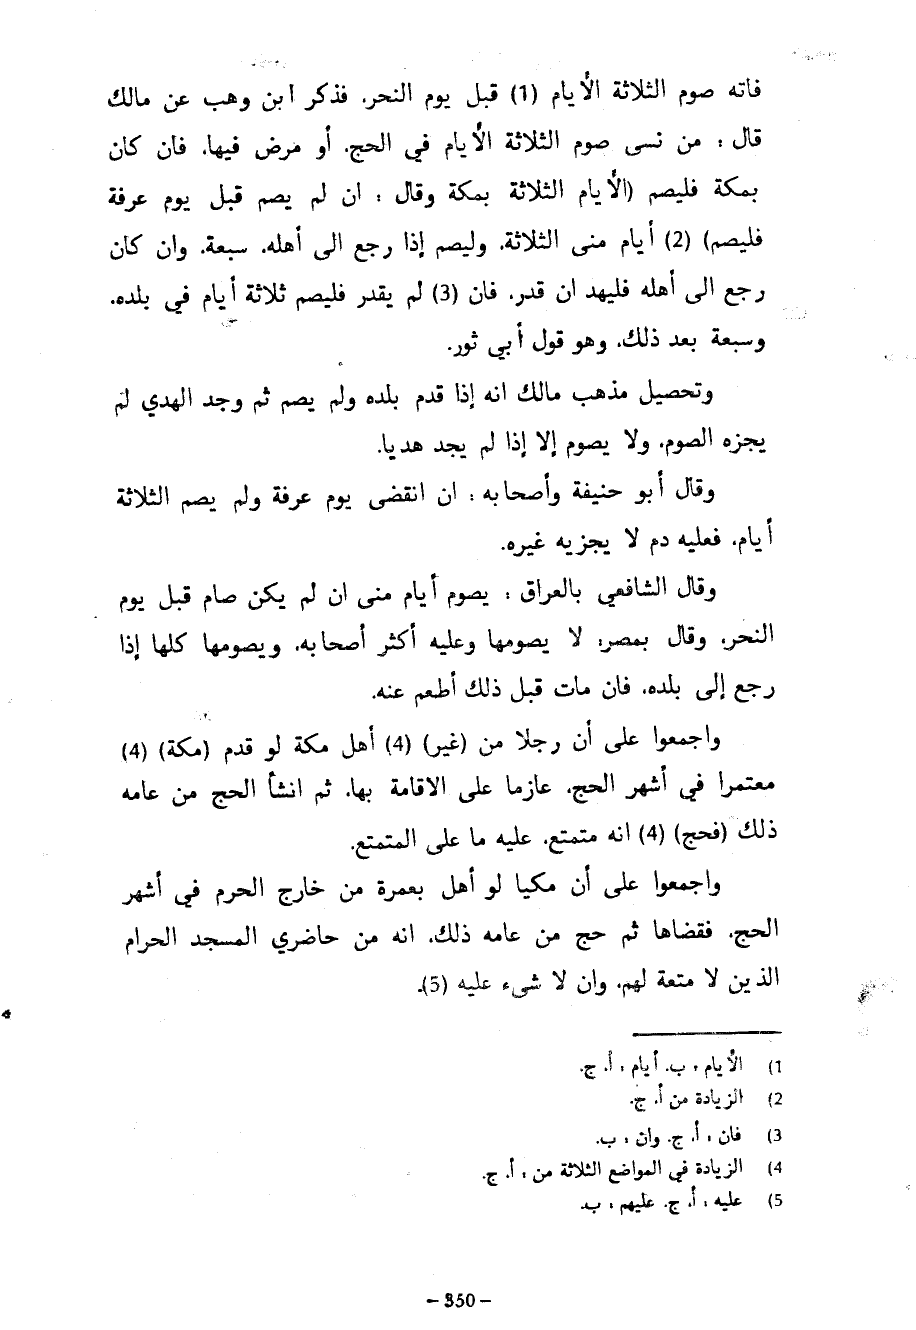 فاته صوم الثلاثة الأيام (1) قبل يوم النحر. فذكر ابن وهب عن مالك
قال : من نسى صوم الثلاثة الأيام في الحج. أو مرض فيها. فان كان
بمكة فليصم (الأيام الثلاثة بمكة وقال : ان لم يصم قبل يوم عرفة
فليصم) (2) أيام منى الثلاثة. وليصم إذا رجع الى أهله. سبعة. وان كان
رجع الى أهله فليهد ان قدر. فان (3) لم يقدر فليصم ثلاثة أيام في بلده.
وسبعة بعد ذلك. وهو قول أبي ثور.
وتحصيل مذهب مالك انه إذا قدم بلده ولم يصم ثم وجد الهدي لم
يجزه الصوم. ولا يصوم إلا إذا لم يجد هديا.
وقال أبو حنيفة وأصحابه : ان انقضى يوم عرفة ولم يصم الثلاثة
أيام. فعليه دم لا يجزيه غيره.
وقال الشافعي بالعراق : يصوم أيام منى ان لم يكن صام قبل يوم
النحر. وقال بمصر: لا يصومها وعليه أكثر أصحابه. ويصومها كلها إذا
رجع إلى بلده. فان مات قبل ذلك أطعم عنه.
واجمعوا على أن رجلا من (غير) (4) أهل مكة لو قدم (مكة) (4)
معتمرا في أشهر الحج. عازما على الاقامة بها. ثم انشأ الحج من عامه
ذلك (فحج) (4) انه متمتع. عليه ما على المتمتع.
واجمعوا على أن مكيا لو أهل بعمرة من خارج الحرم في أشهر
الحج. فقضاها ثم حج من عامه ذلك. انه من حاضري المسجد الحرام
الذين لا متعة لهم. وان لا شيء عليه (5).
1) الأيام : ب. أيام : أ. ج.
2) الزيادة من أ. ج.
3) فان : أ. ج. وان : ب.
4) الزيادة في المواضع الثلاثة من : أ. ج.
5) عليه : أ. ج. عليهم : ب.
- 350 -